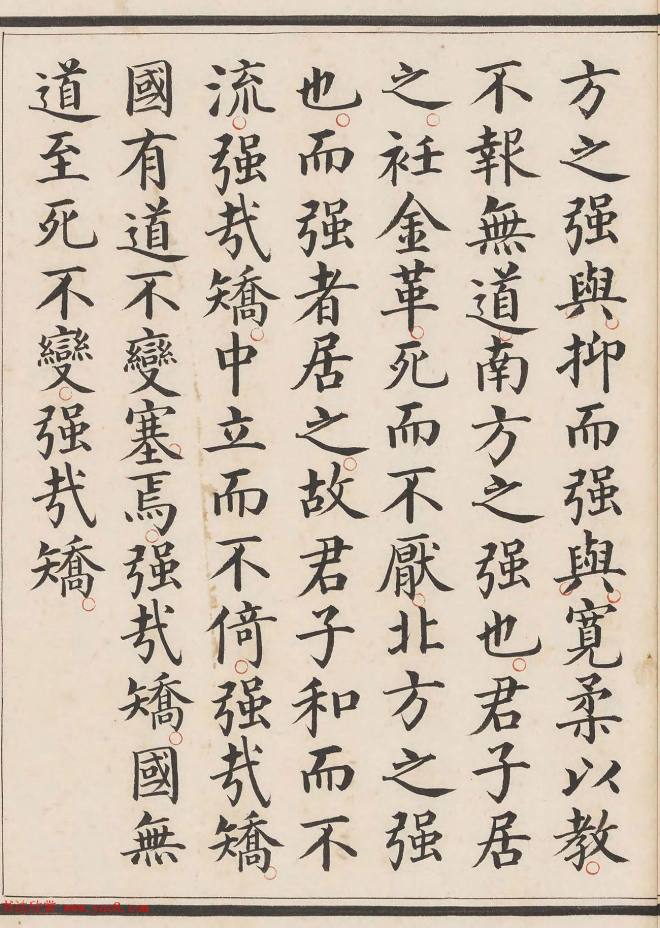 方之强與抑而强與寬柔以教
不報無道南方之强也君子居
之衽金革死而不厭北方之强
也而强者居之故君子和而不
流强哉矯中立而不倚强哉矯
國有道不變塞焉强哉矯國無
道至死不變强哉矯